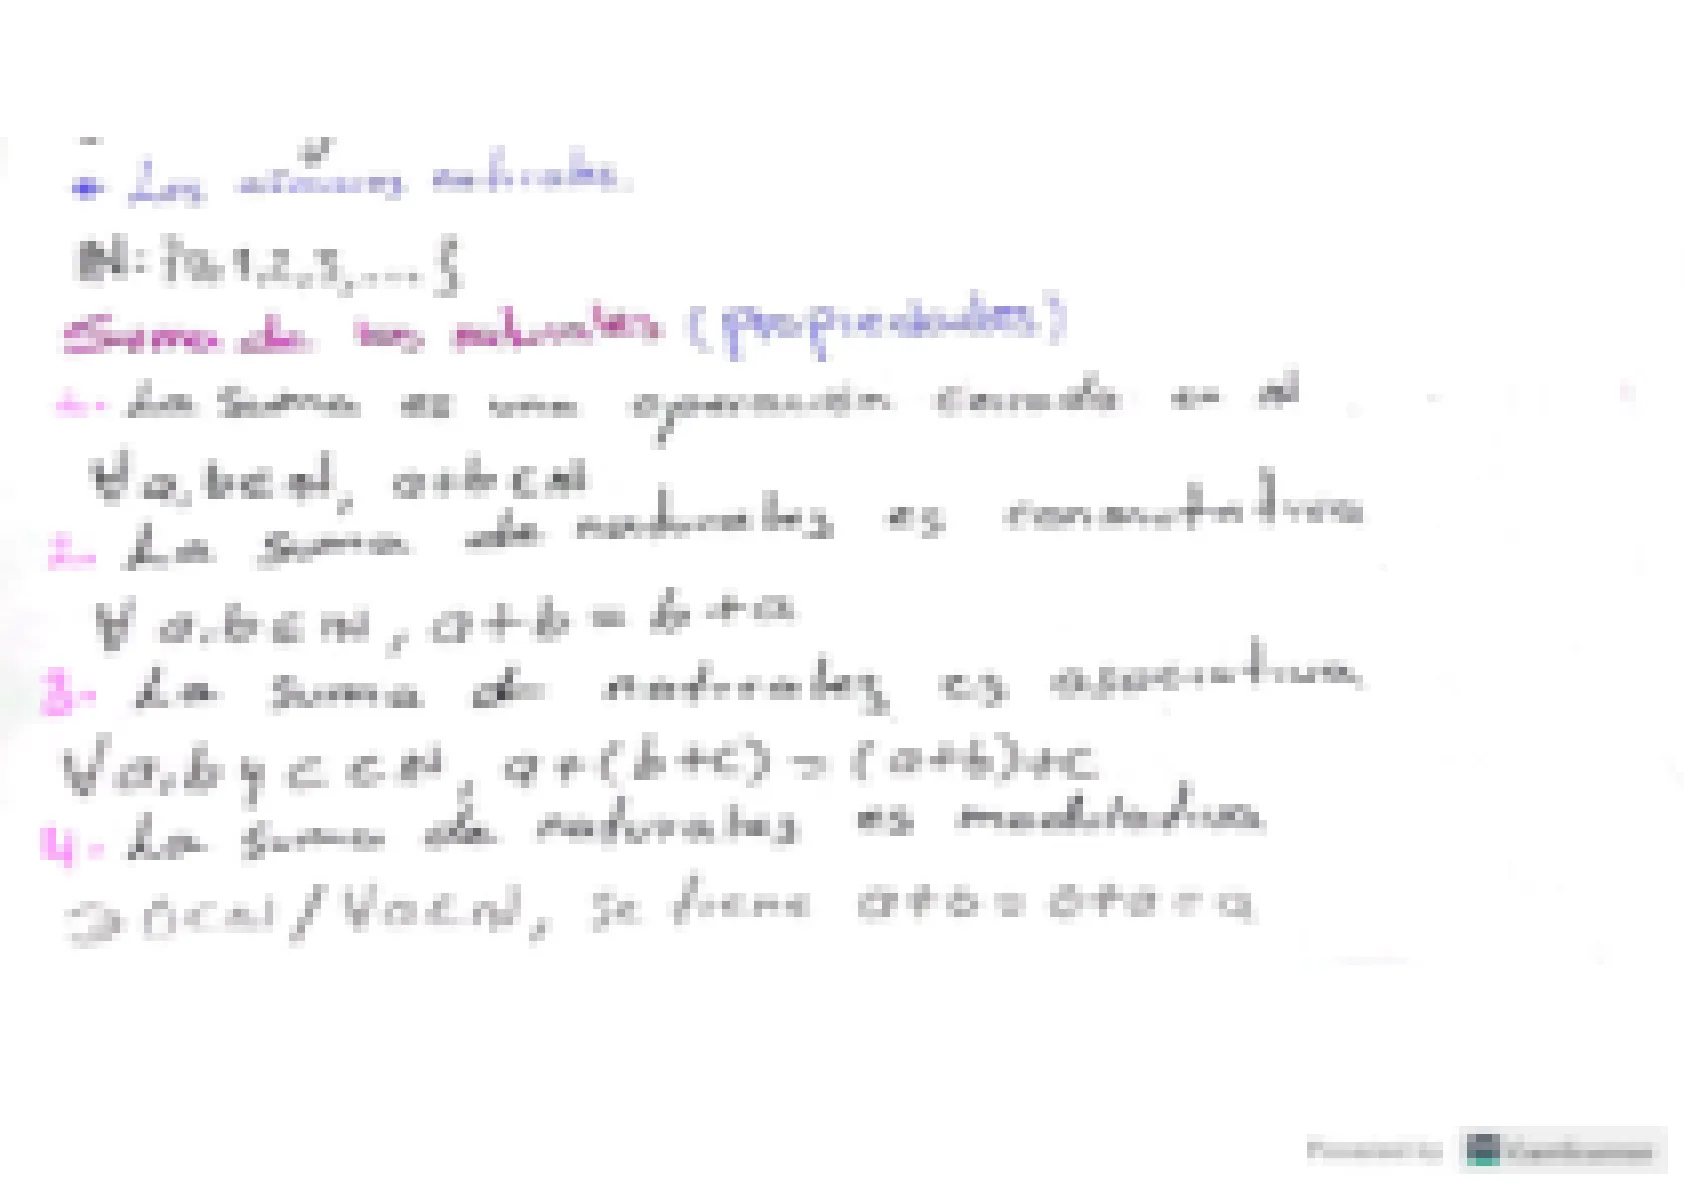 Los números naturales.
N: {0,1,2,3,...}
Suma de los naturales (propiedades)
1.- La suma es una operación cerrada en N
∀ a,b ∈ N, a+b ∈ N
2.- La suma de naturales es conmutativa
∀ a,b ∈ N, a+b = b+a
3.- La suma de naturales es asociativa
∀ a,b y c ∈ N, a+(b+c) = (a+b)+c
4.- La suma de naturales es modulativa
∃ 0 ∈ N / ∀ a ∈ N, se tiene a+0 = 0+a = a
Powered by CamScanner